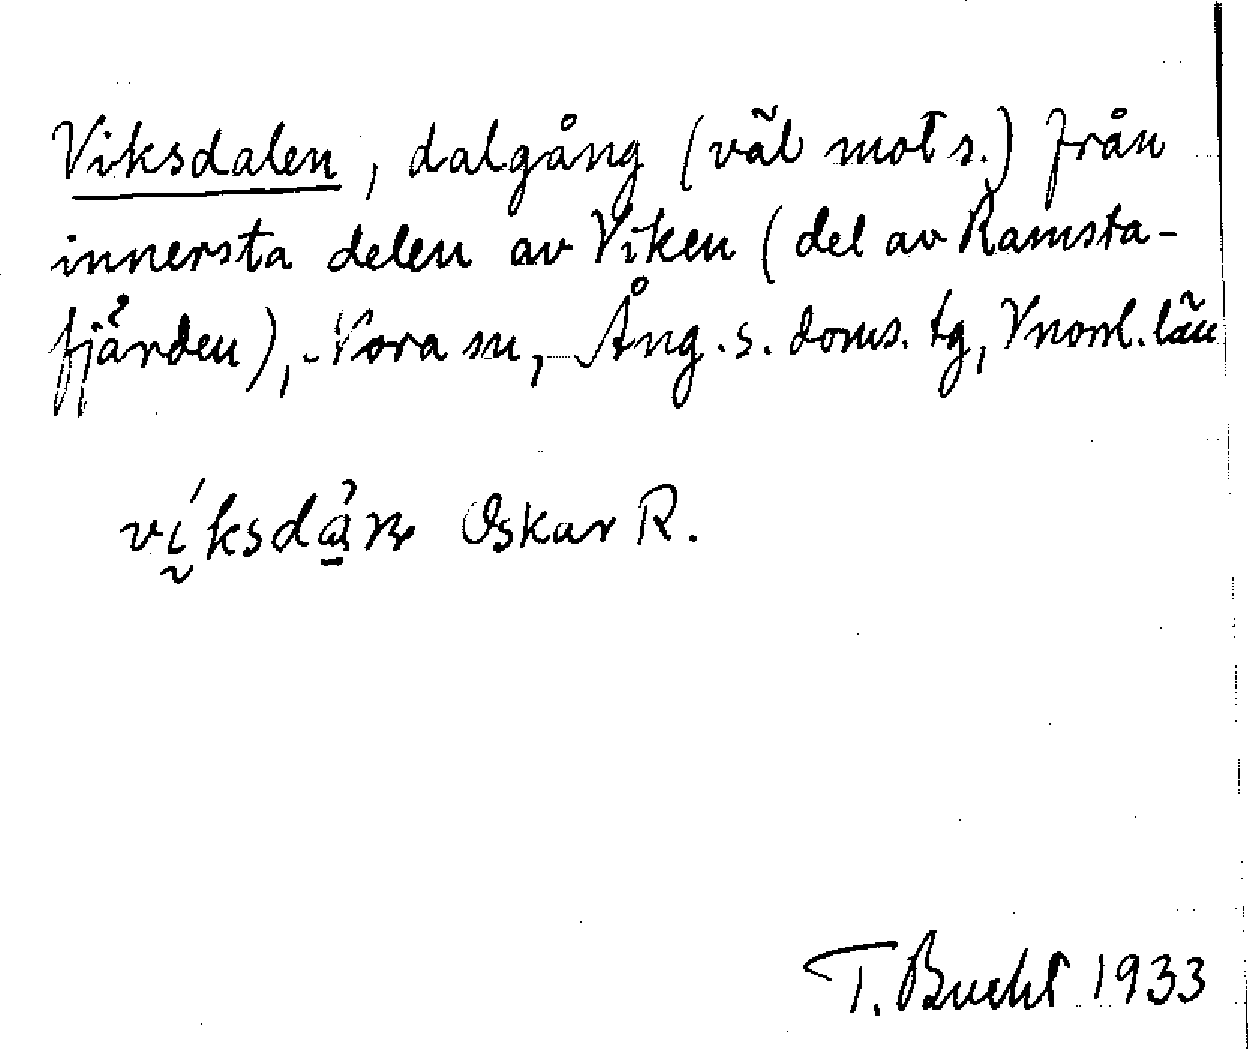 Viksdalen, dalgång (väl mot s.) från
innersta delen av Viken (del av Ramsta-
fjärden), Nora sn, Ång. s. doms. tg, Vnorrl. län
Oskar R.
T. Bucht 1933